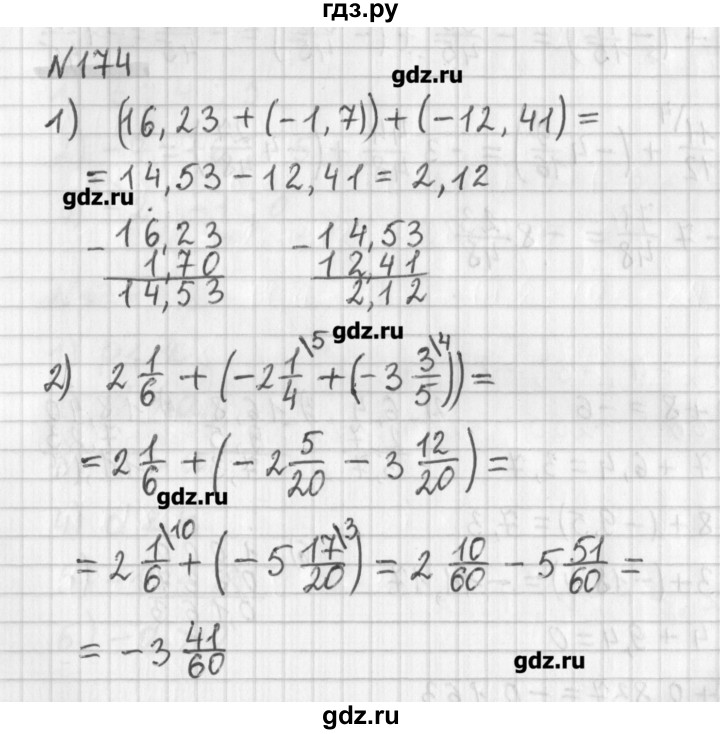 гдз.ру
№174
gdz.ru
1) (16,23 + (-1,7)) + (-12,41) =
= 14,53 - 12,41 = 2,12
gdz.ru
- 16,23 - 14,53
1,70 12,41
14,53 2,12
gdz.ru
2) 2 1/6 + (-2 1/4\5 + (-3 3/5\4)) =
= 2 1/6 + (-2 5/20 - 3 12/20) =
gdz.ru
= 2 1/6\10 + (-5 17/20\3) = 2 10/60 - 5 51/60 =
= -3 41/60
gdz.ru
gdz.ru